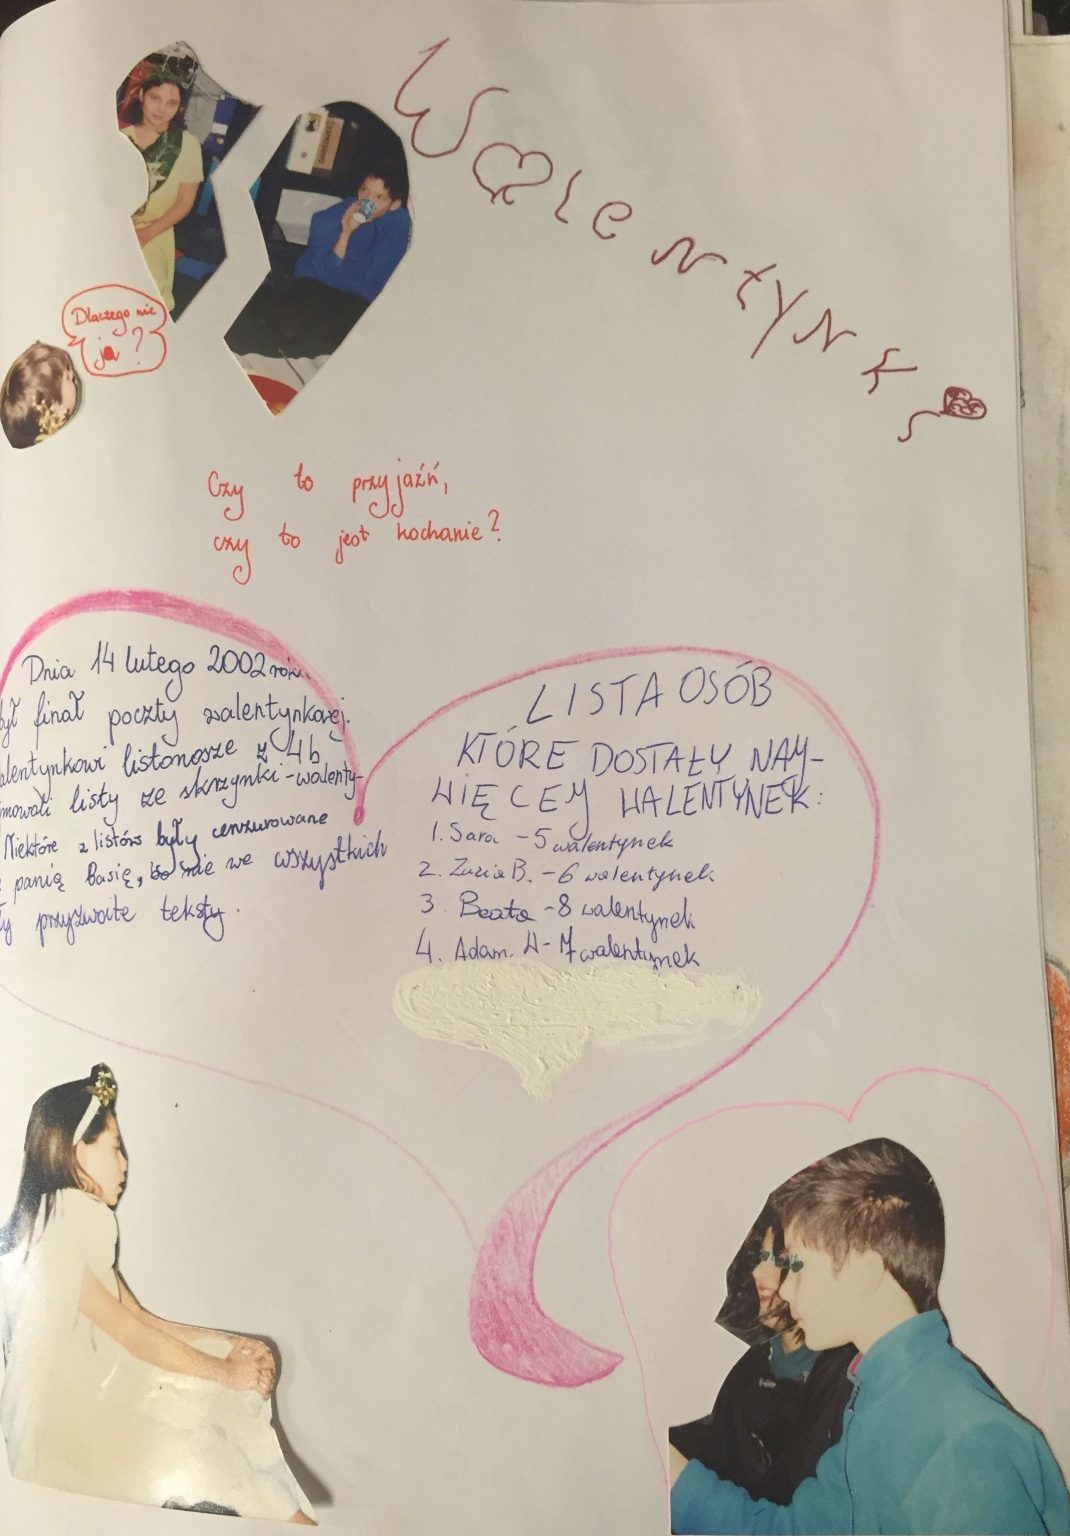 Walentynki
Dlaczego nie
ja?
Czy to przyjaźń,
czy to jest kochanie?
Dnia 14 lutego 2002 roku.
był finał poczty walentynkowej.
alentynkowi listonosze z 4b
mowali listy ze skrzynki-walenty-
Niektóre z listów były cenzurowane
panią Basię, bo nie we wszystkich
ły przyzwoite teksty.
LISTA OSÓB
KTÓRE DOSTAŁY NAJ-
WIĘCEJ WALENTYNEK:
1. Sara - 5 walentynek
2. Zuzia B. - 6 walentynek
3. Beata - 8 walentynek
4. Adam. W - 7 walentynek